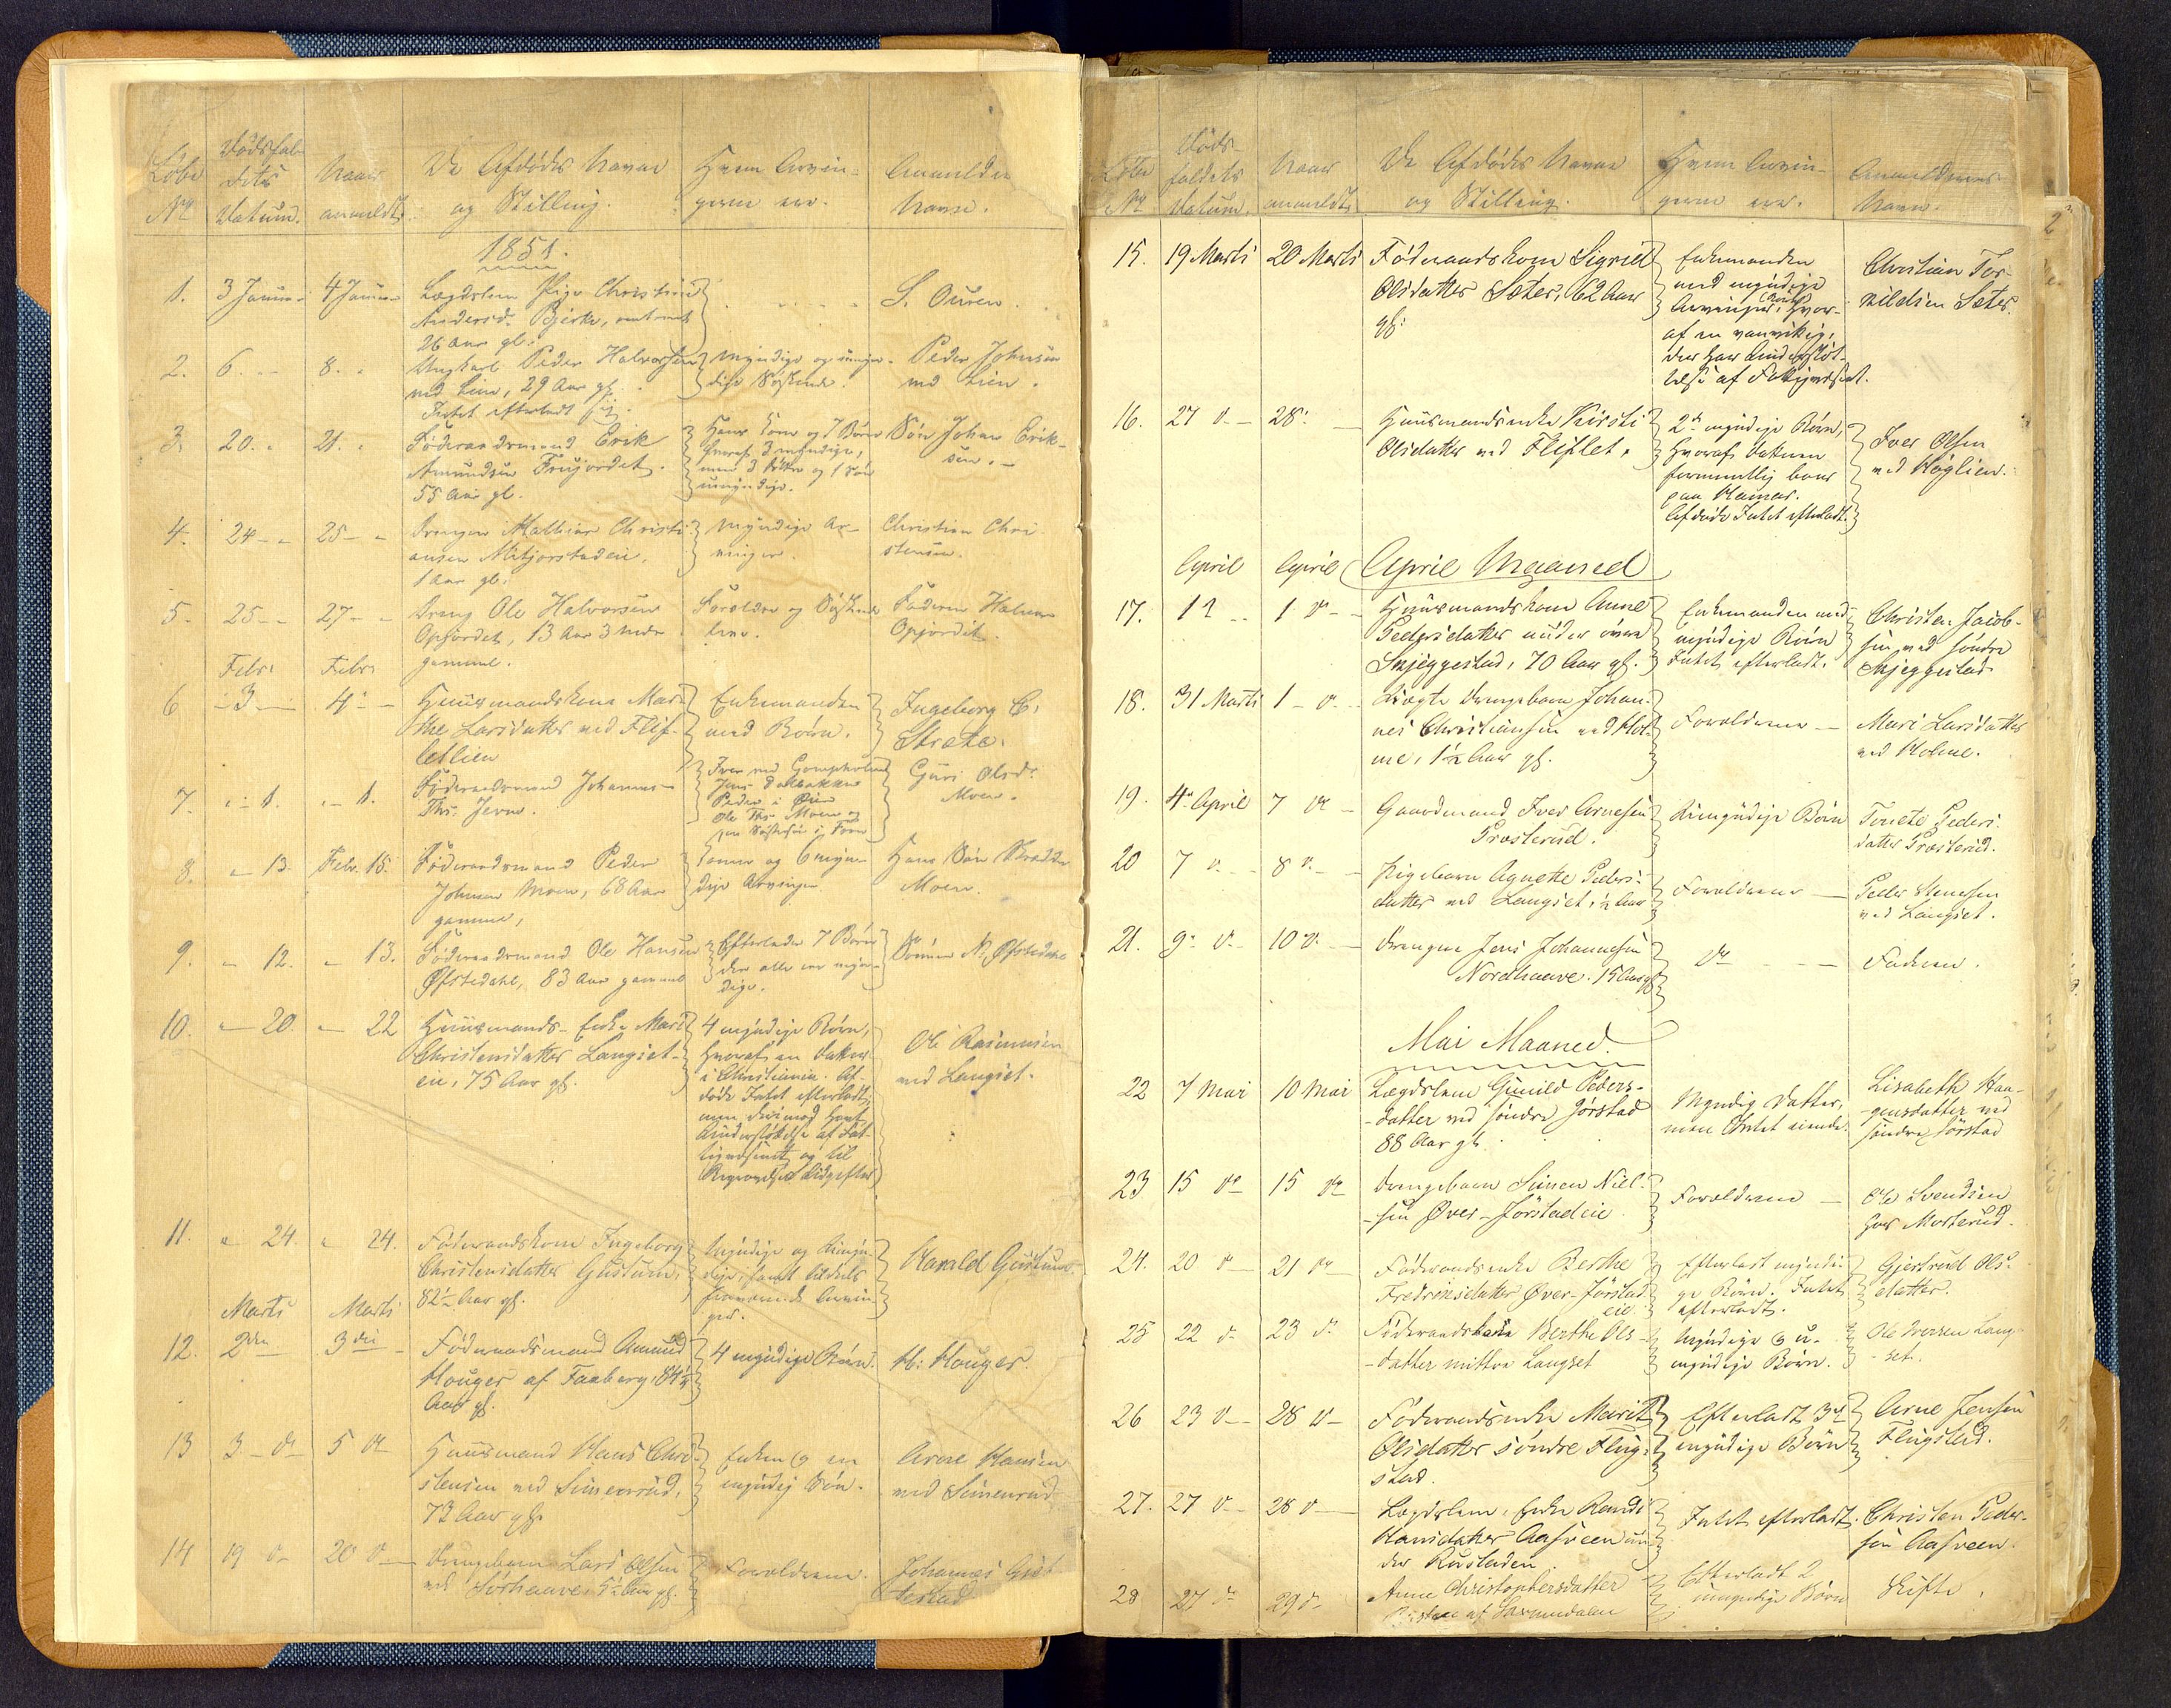 Løbe
No
Dødsfal-
dets
Datum.
Naar
anmeldt.
De Afdødes Navne
og Stilling.
Hvem Arvin-
gerne ere.
Anmelder
Navn.
1851.
1. 3 Januar 4 Januar Lægdslem Pige Christine
Andersd. Bjerke,
26 Aar gl.
S. Ouren
2. 6. 8. Ungkarl Peder Halvorsen
ved Lien, 29 Aar gl.
Intet efterladt sig.
myndige og umyn-
dige Søskende.
Peder Johnsen
ved Lien.
3. 20. 21. Føderaadsmand Erik
Amundsen Frujordet.
55 Aar gl.
Hans Kone og 7 Børn
hvoraf 3 myndige,
men 3 Døttre og 1 Søn
umyndige.
Søn Johan Erik-
sen.
4. 24 25 Drengen Mathias Christi-
ansen Mitjorstadeie,
1 Aar gl.
Myndige Ar-
vinger.
Christian Chri-
stensen.
5. 25 27 Dreng Ole Halvorsen
Opjordet, 13 Aar 3 Mdr
gammel.
Forældre og Søskende
leve.
Faderen Halvor
Opjordet.
Febr. Febr.
6 3 4 Huusmandskone Mar-
the Larsdatter ved Flif-
letlien
Enkemanden
med Børn.
Ingeborg C.
Stræte.
7. 1. 1. Føderaadsmand Johannes
Ths. Jevne.
Iver ved
Jens Dalbakken
Peder i Øien
Ole Ths. Moen og
en Søstersøn i
Guri Olsdr
Moen.
8. 13 Febr. 15. Føderaadsmand Peder
Johnsen Moen, 68 Aar
gammel,
Kone og 6 myn-
dige Arvinger
Hans Søn
Moen.
9. 12. 13. Føderaadsmand Ole Hansen
Øfstedahl, 83 Aar gammel
Efterlader 7 Børn
der alle ere myn-
dige.
Sønnen N. Øfstedahl
10. 20. 22 Huusmands-Enke Mari
Christensdatter Langset-
eie, 75 Aar gl.
4 myndige Børn,
hvoraf en Datter
i Christiania. Af-
døde Intet efterladt,
men derimod havt
Understøttelse af Fat-
tigvæsenet og til
Begravelse Udgifter
Ole Rasmusen
ved Langset.
11. 24. 24. Føderaadskone Ingeborg
Christensdatter Gustum,
82½ Aar gl.
Myndige og Umyn-
dige, samt tildeels
fraværende Arvin-
ger.
Harald Gustum
Marts Marts
12. 2den 3die Føderaadsmand Amund
Houger af Faaberg, 84½
Aar gl.
4 myndige Børn.
H. Houger.
13 3 do 5 do Huusmand Hans Chri-
stensen ved Simenrud,
73 Aar gl.
Enken og en
myndig Søn.
Arne Hansen
ved Simenrud
14 19 do 20 do Drengebarn Lars Olsen
ved Sørhaave, 5½ Aar gl.
Forældrene.
Johannes
Løbe
No
Døds-
faldets
Datum.
Naar
anmeldt
De Afdødes Navne
og Stilling.
Hvem Arvin-
gerne ere.
Anmelderens
Navn.
15. 19 Marts 20 Marts Føderaadskone Sigrid
Olsdatter Sæter, 62 Aar
gl.
Enkemanden
med myndige
Arvinger, hvor-
af en vanvittig,
der har Understøt-
telse af Fattigvæsenet.
Christian Tor-
kildsen Sæter.
16. 27 do 28. Huusmandsenke Kirsti
Olsdatter ved Fliflet.
2de myndige Børn,
hvoraf Datteren
formentlig boer
paa Hamar.
Afdøde Intet efterladt.
Iver Olsen
ved Høglien.
April April April Maaned
17. 1 1 do Huusmandskone Anne
Pedersdatter under øvre
Skjeggestad, 70 Aar gl.
Enkemanden med
myndige Børn
Intet efterladt.
Christen Jacob-
sen ved søndre
Skjeggestad
18. 31 Marts 1 do Uægte Drengebarn Johan-
nes Christiansen ved Hol-
me, 1½ Aar gl.
Forældrene
Mari Larsdatter
ved Holme.
19. 4de April 7 do Gaardmand Iver Arnesen
Prosterud.
Umyndige Børn
Tonete Peders-
datter Prosterud.
20 7 do 8 do Pigebarn Agnethe Peders-
datter ved Langset, ½ Aar
Forældrene
Peder Stenersen
ved Langset.
21. 9 do 10 do Drengen Jens Johannesen
Nordhaave. 15 Aar gl
do
Faderen.
Mai Maaned.
22 7 Mai 10 Mai Lægdslem Gunild Peders-
datter ved søndre Jørstad
88 Aar gl.
Myndig Datter,
men Intet eiende.
Lisabeth Haa-
gensdatter ved
søndre Jørstad
23 15 do 15 do Drengebarn Simen Niel-
sen Øver-Jørstadeie
Forældrene
Ole Svendsen
hos Mosterud.
24. 20 do 21 do Føderaadsenke Berthe
Fredriksdatter Øver-Jørstad
eie.
Efterladt myndi-
ge Børn. Intet
efterladt.
Gjertrud Ols-
datter.
25 22 do 23 do Føderaadskone Berthe Ols-
datter mittre Langset
Myndige og u-
myndige Børn.
Ole Iversen Lang-
set.
26 23 do 28 do Føderaadsenke Marit
Olsdatter søndre Flug-
stad.
Efterladt 3de
myndige Børn
Arne Jensen
Flugstad.
27. 27 do 28 do Lægdslem, Enke Randi
Hansdatter Aasveen un-
der Rustaden.
Intet efterladt.
Christen Peder-
sen Aasveen.
28 27 do 29 do Anne Christophersdatter
af
Efterladt 2
umyndige Børn
Skifte.